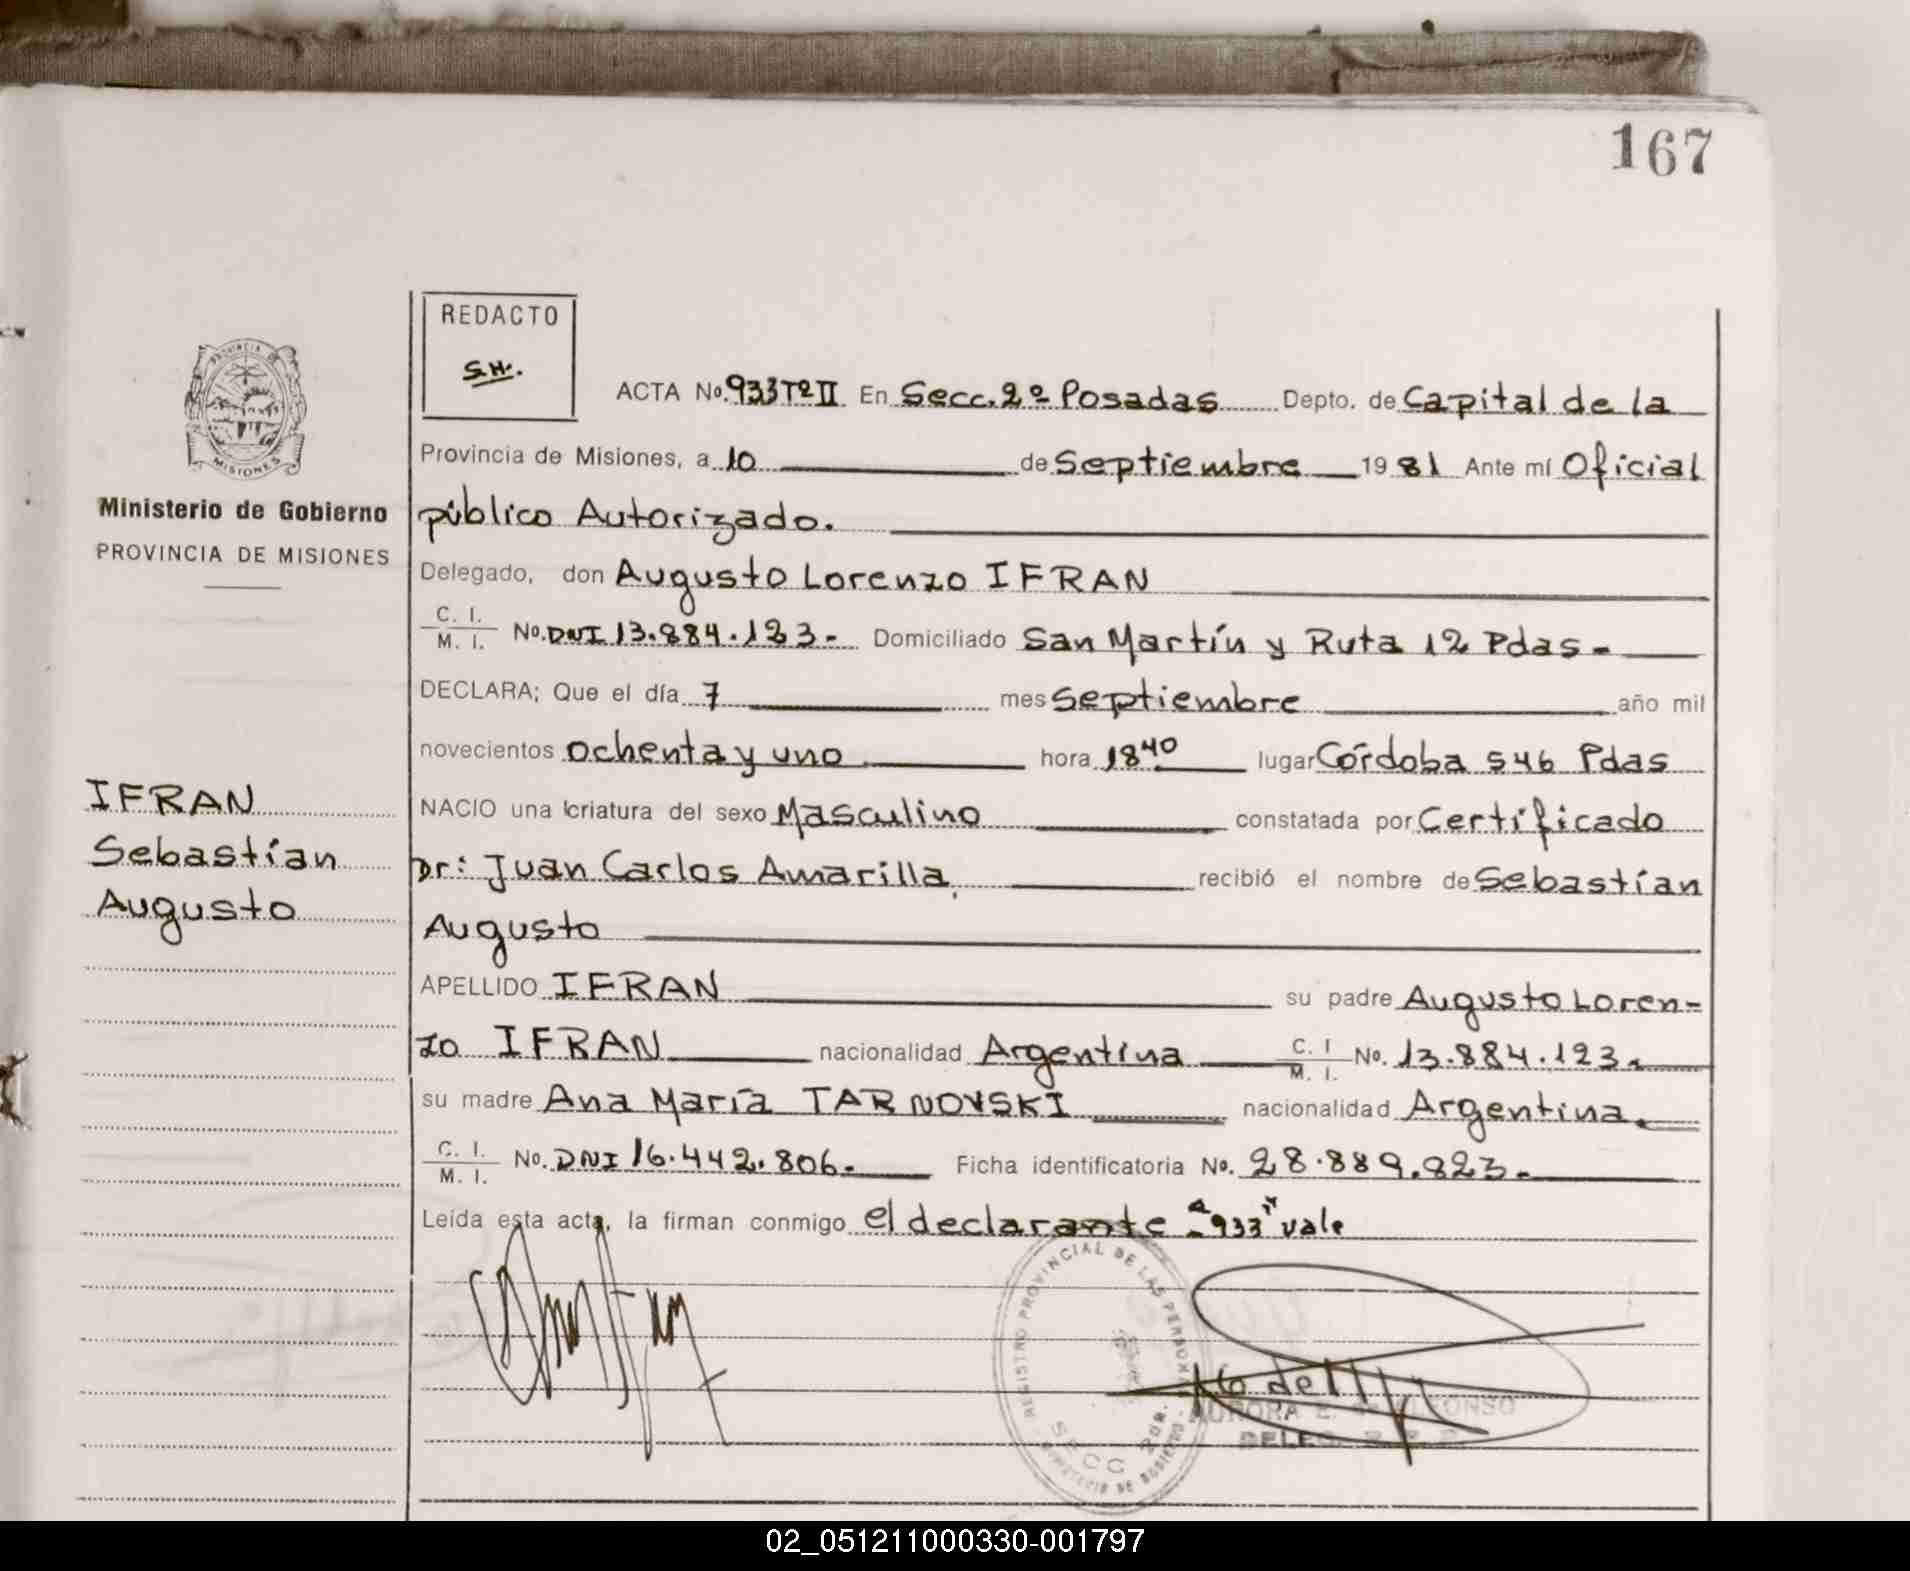 167
REDACTO
S.H.
ACTA No. 933 Tº II En Secc. 2º Posadas Depto. de Capital de la
Provincia de Misiones, a 10 de Septiembre 1981 Ante mí Oficial
público Autorizado.
Delegado, don Augusto Lorenzo IFRAN
C. I. M. I. No. DNI 13.884.123.- Domiciliado San Martín y Ruta 12 Pdas-
DECLARA; Que el día 7 mes Septiembre año mil
novecientos ochenta y uno hora 18 40 lugar Córdoba 546 Pdas
NACIO una criatura del sexo Masculino constatada por Certificado
Dr: Juan Carlos Amarilla, recibió el nombre de Sebastían
Augusto
APELLIDO IFRAN su padre Augusto Loren-
zo IFRAN nacionalidad Argentina C. I M. I. No. 13.884.123.
su madre Ana María TARNOVSKI nacionalidad Argentina.
C. I. M. I. No. DNI 16.442.806.- Ficha identificatoria No. 28.889.823.-
Leída esta acta, la firman conmigo el declarante - "933" vale
PROVINCIA DE
MISIONES
Ministerio de Gobierno
PROVINCIA DE MISIONES
IFRAN
Sebastían
Augusto
REGISTRO PROVINCIAL DE LAS PERSONAS
SECC 2da.
MINISTERIO DE GOBIERNO
AURORA E. de ALFONSO
DELEG.
02_051211000330-001797